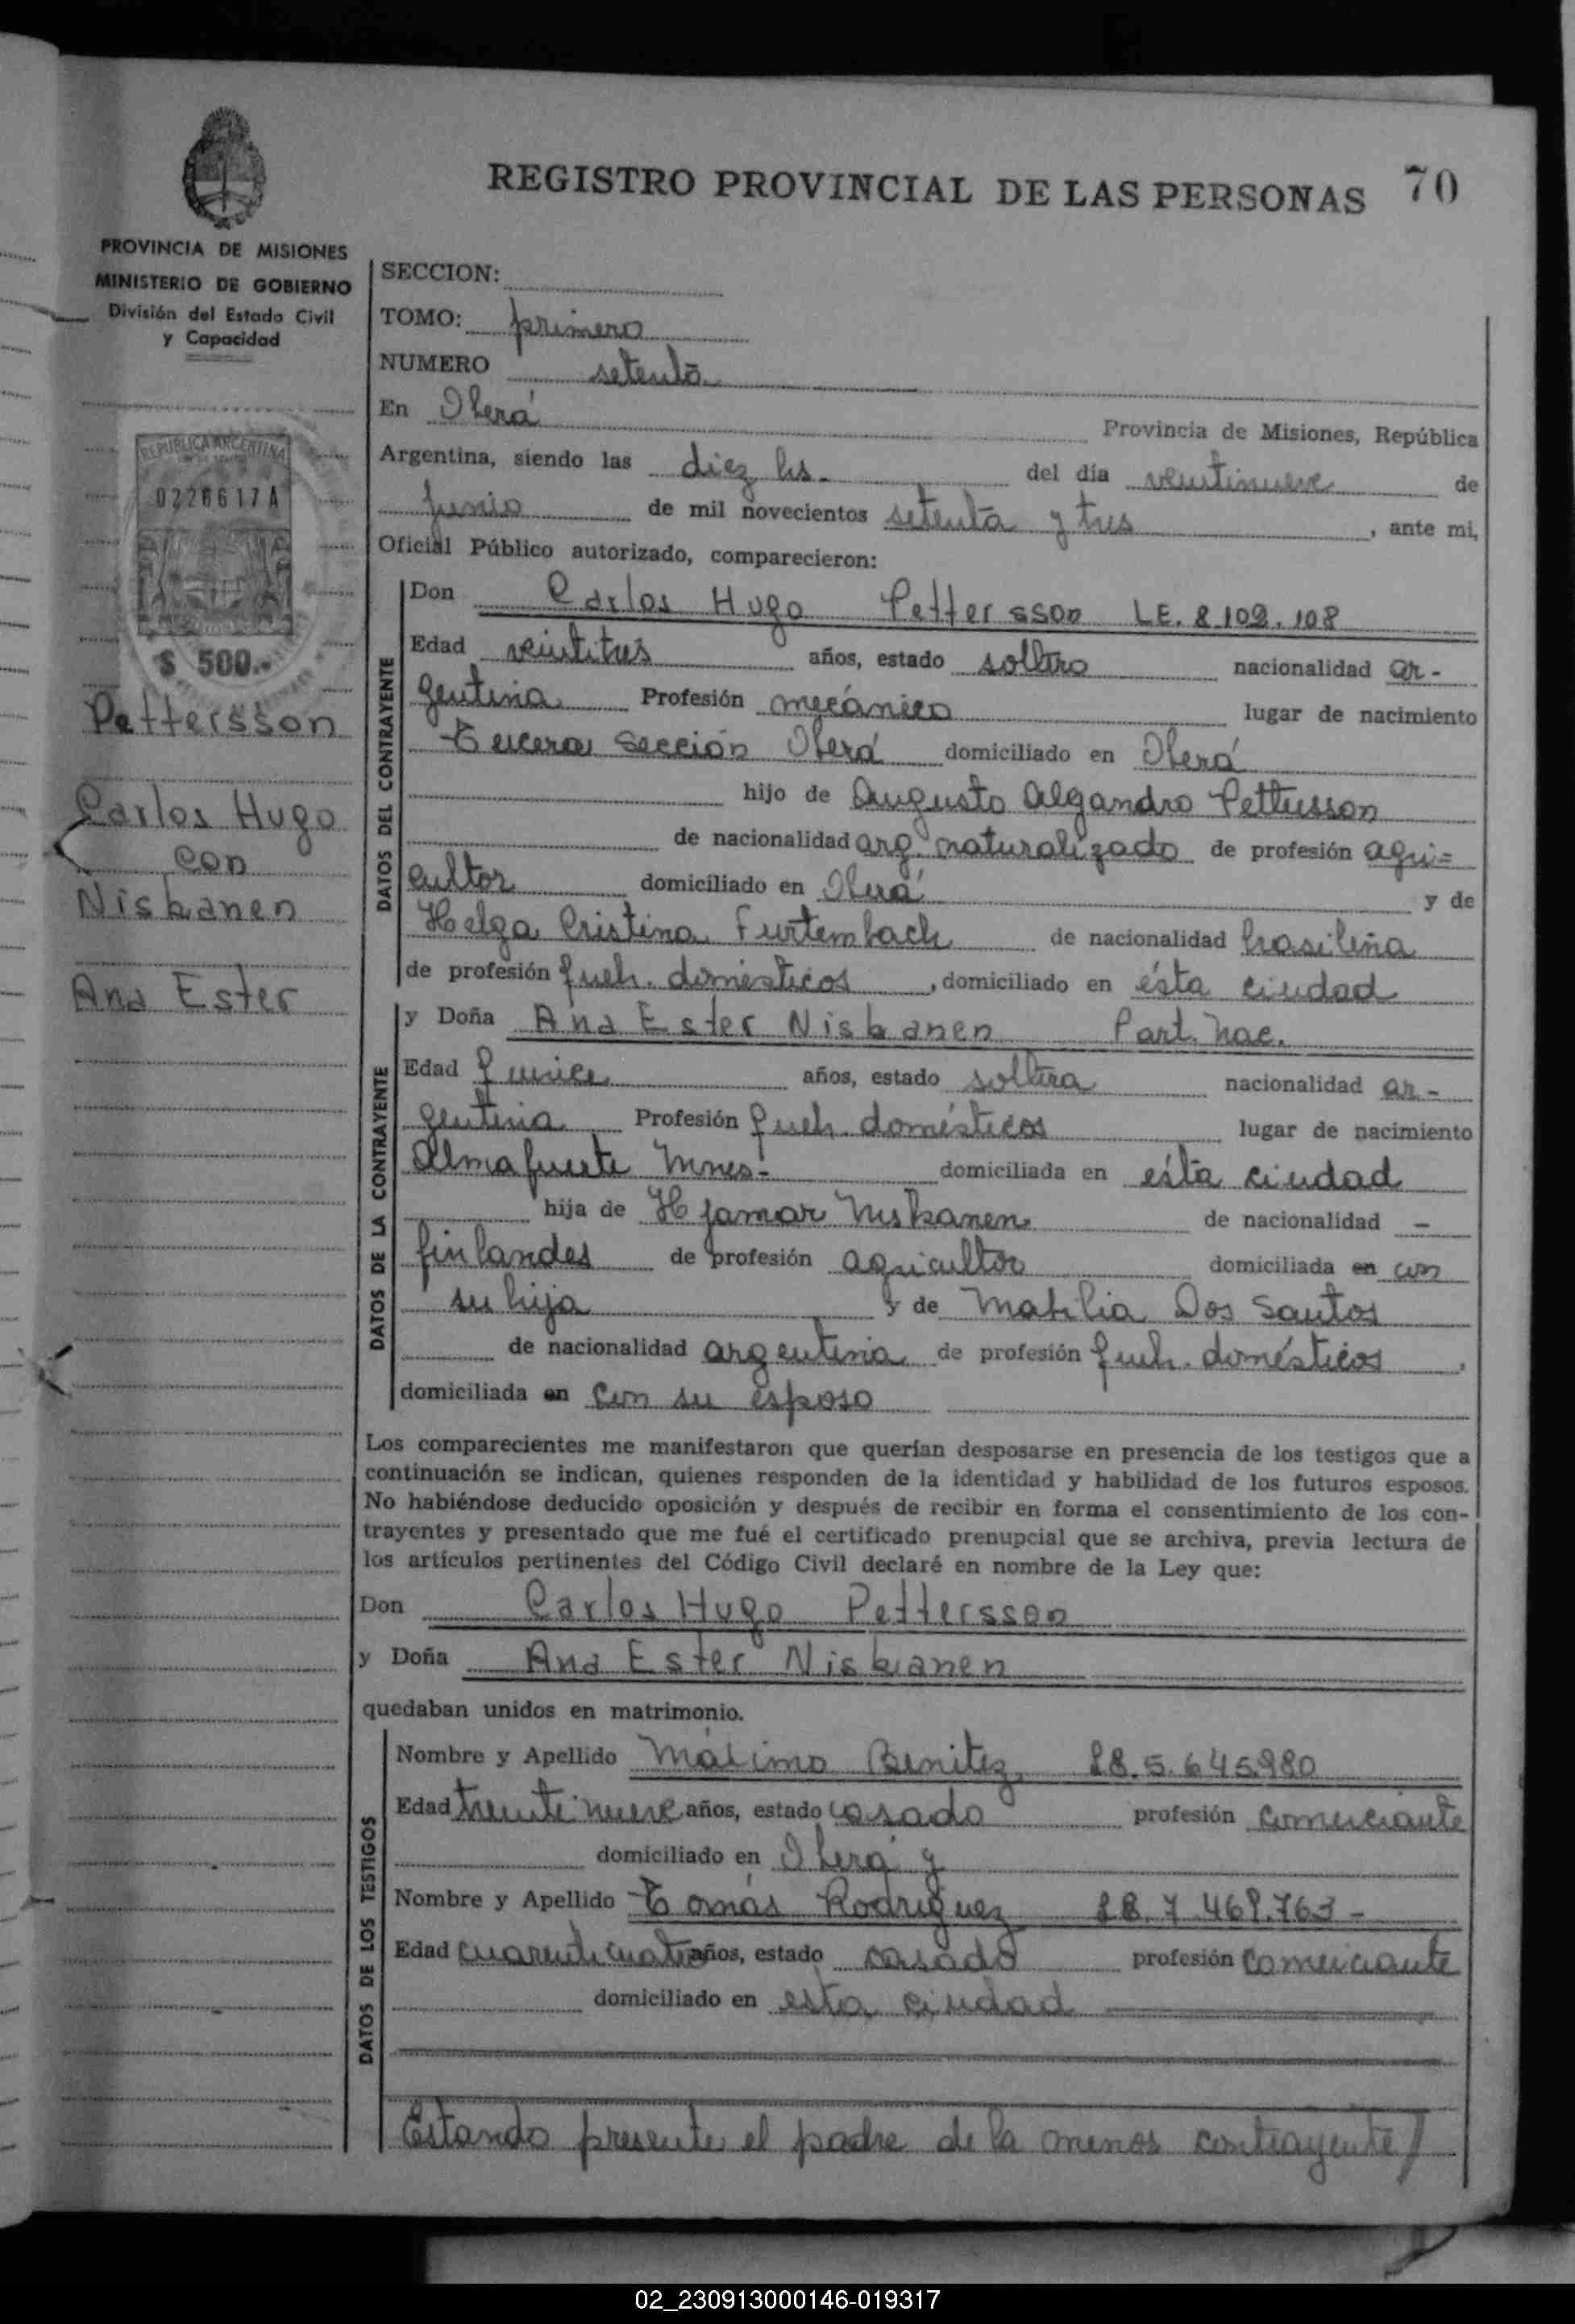 REGISTRO PROVINCIAL DE LAS PERSONAS 70
PROVINCIA DE MISIONES
MINISTERIO DE GOBIERNO
División del Estado Civil
y Capacidad
REPUBLICA ARGENTINA
0226617A
$ 500.-
Pettersson
Carlos Hugo
con
Niskanen
Ana Ester
SECCION:
TOMO: primero
NUMERO setenta
En Oberá Provincia de Misiones, República
Argentina, siendo las diez hs. del día veintinueve de
Junio de mil novecientos setenta y tres, ante mi,
Oficial Público autorizado, comparecieron:
DATOS DEL CONTRAYENTE
Don Carlos Hugo Pettersson LE. 8.109.108
Edad veintitres años, estado soltero nacionalidad ar-
gentina Profesión mecánico lugar de nacimiento
Tercera Sección Oberá domiciliado en Oberá
hijo de Augusto Alejandro Pettersson
de nacionalidad arg. naturalizado de profesión agri=
cultor domiciliado en Oberá y de
Helga Cristina Furtembach de nacionalidad brasileña
de profesión queh. domésticos, domiciliado en ésta ciudad
DATOS DE LA CONTRAYENTE
y Doña Ana Ester Niskanen Part. Nac.
Edad quince años, estado soltera nacionalidad ar-
gentina Profesión queh. domésticos lugar de nacimiento
Almafuerte Mnes- domiciliada en ésta ciudad
hija de Hjamar Niskanen de nacionalidad -
finlandes de profesión agricultor domiciliada en con
su hija y de Matilia Dos Santos
de nacionalidad argentina de profesión queh. domésticos,
domiciliada en con su esposo
Los comparecientes me manifestaron que querían desposarse en presencia de los testigos que a
continuación se indican, quienes responden de la identidad y habilidad de los futuros esposos.
No habiéndose deducido oposición y después de recibir en forma el consentimiento de los con-
trayentes y presentado que me fué el certificado prenupcial que se archiva, previa lectura de
los artículos pertinentes del Código Civil declaré en nombre de la Ley que:
Don Carlos Hugo Pettersson
y Doña Ana Ester Niskanen
quedaban unidos en matrimonio.
DATOS DE LOS TESTIGOS
Nombre y Apellido Máximo Benitez 5.645.980
Edad treinti nueve años, estado casado profesión comerciante
domiciliado en Oberá y
Nombre y Apellido Tomás Rodriguez 7.469.763-
Edad cuarenti cuatro años, estado casado profesión comerciante
domiciliado en esta ciudad
Estando presente el padre de la menor contrayente/
02_230913000146-019317